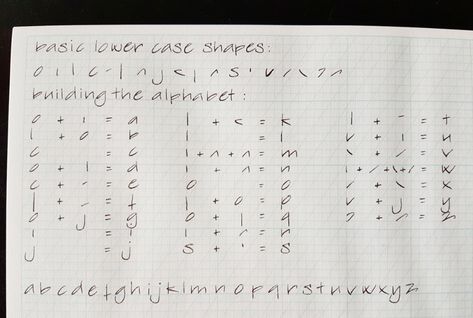 basic lower case shapes:
building the alphabet:
o + ı = a
l + o = b
c = c
o + l = d
c + - = e
o + j = g
i = i
j = j
l + c = k
l = l
ı + n + n = m
ı + n = n
o = o
l + o = p
o + l = q
s + ' = s
l + - = t
v + ı = u
\ + / = v
\ + / + \ + / = w
/ + \ = x
v + j = y
abcdefghijklmnopqrstuvwxyz